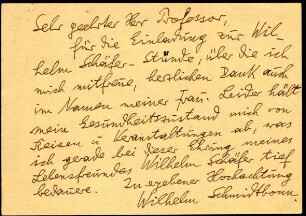 Sehr geehrter Herr Professor,
für die Einladung zur Wil-
helm Schäfer-Stunde, über die ich
mich mitfreue, herzlichen Dank auch
im Namen meiner Frau. Leider hält
mein Gesundheitszustand mich von
Reisen u Veranstaltungen ab, was
ich gerade bei dieser Ehrung meines
Lebensfreundes Wilhelm Schäfer tief
bedaure.
In ergebener Hochachtung
Wilhelm Schmidtbonn